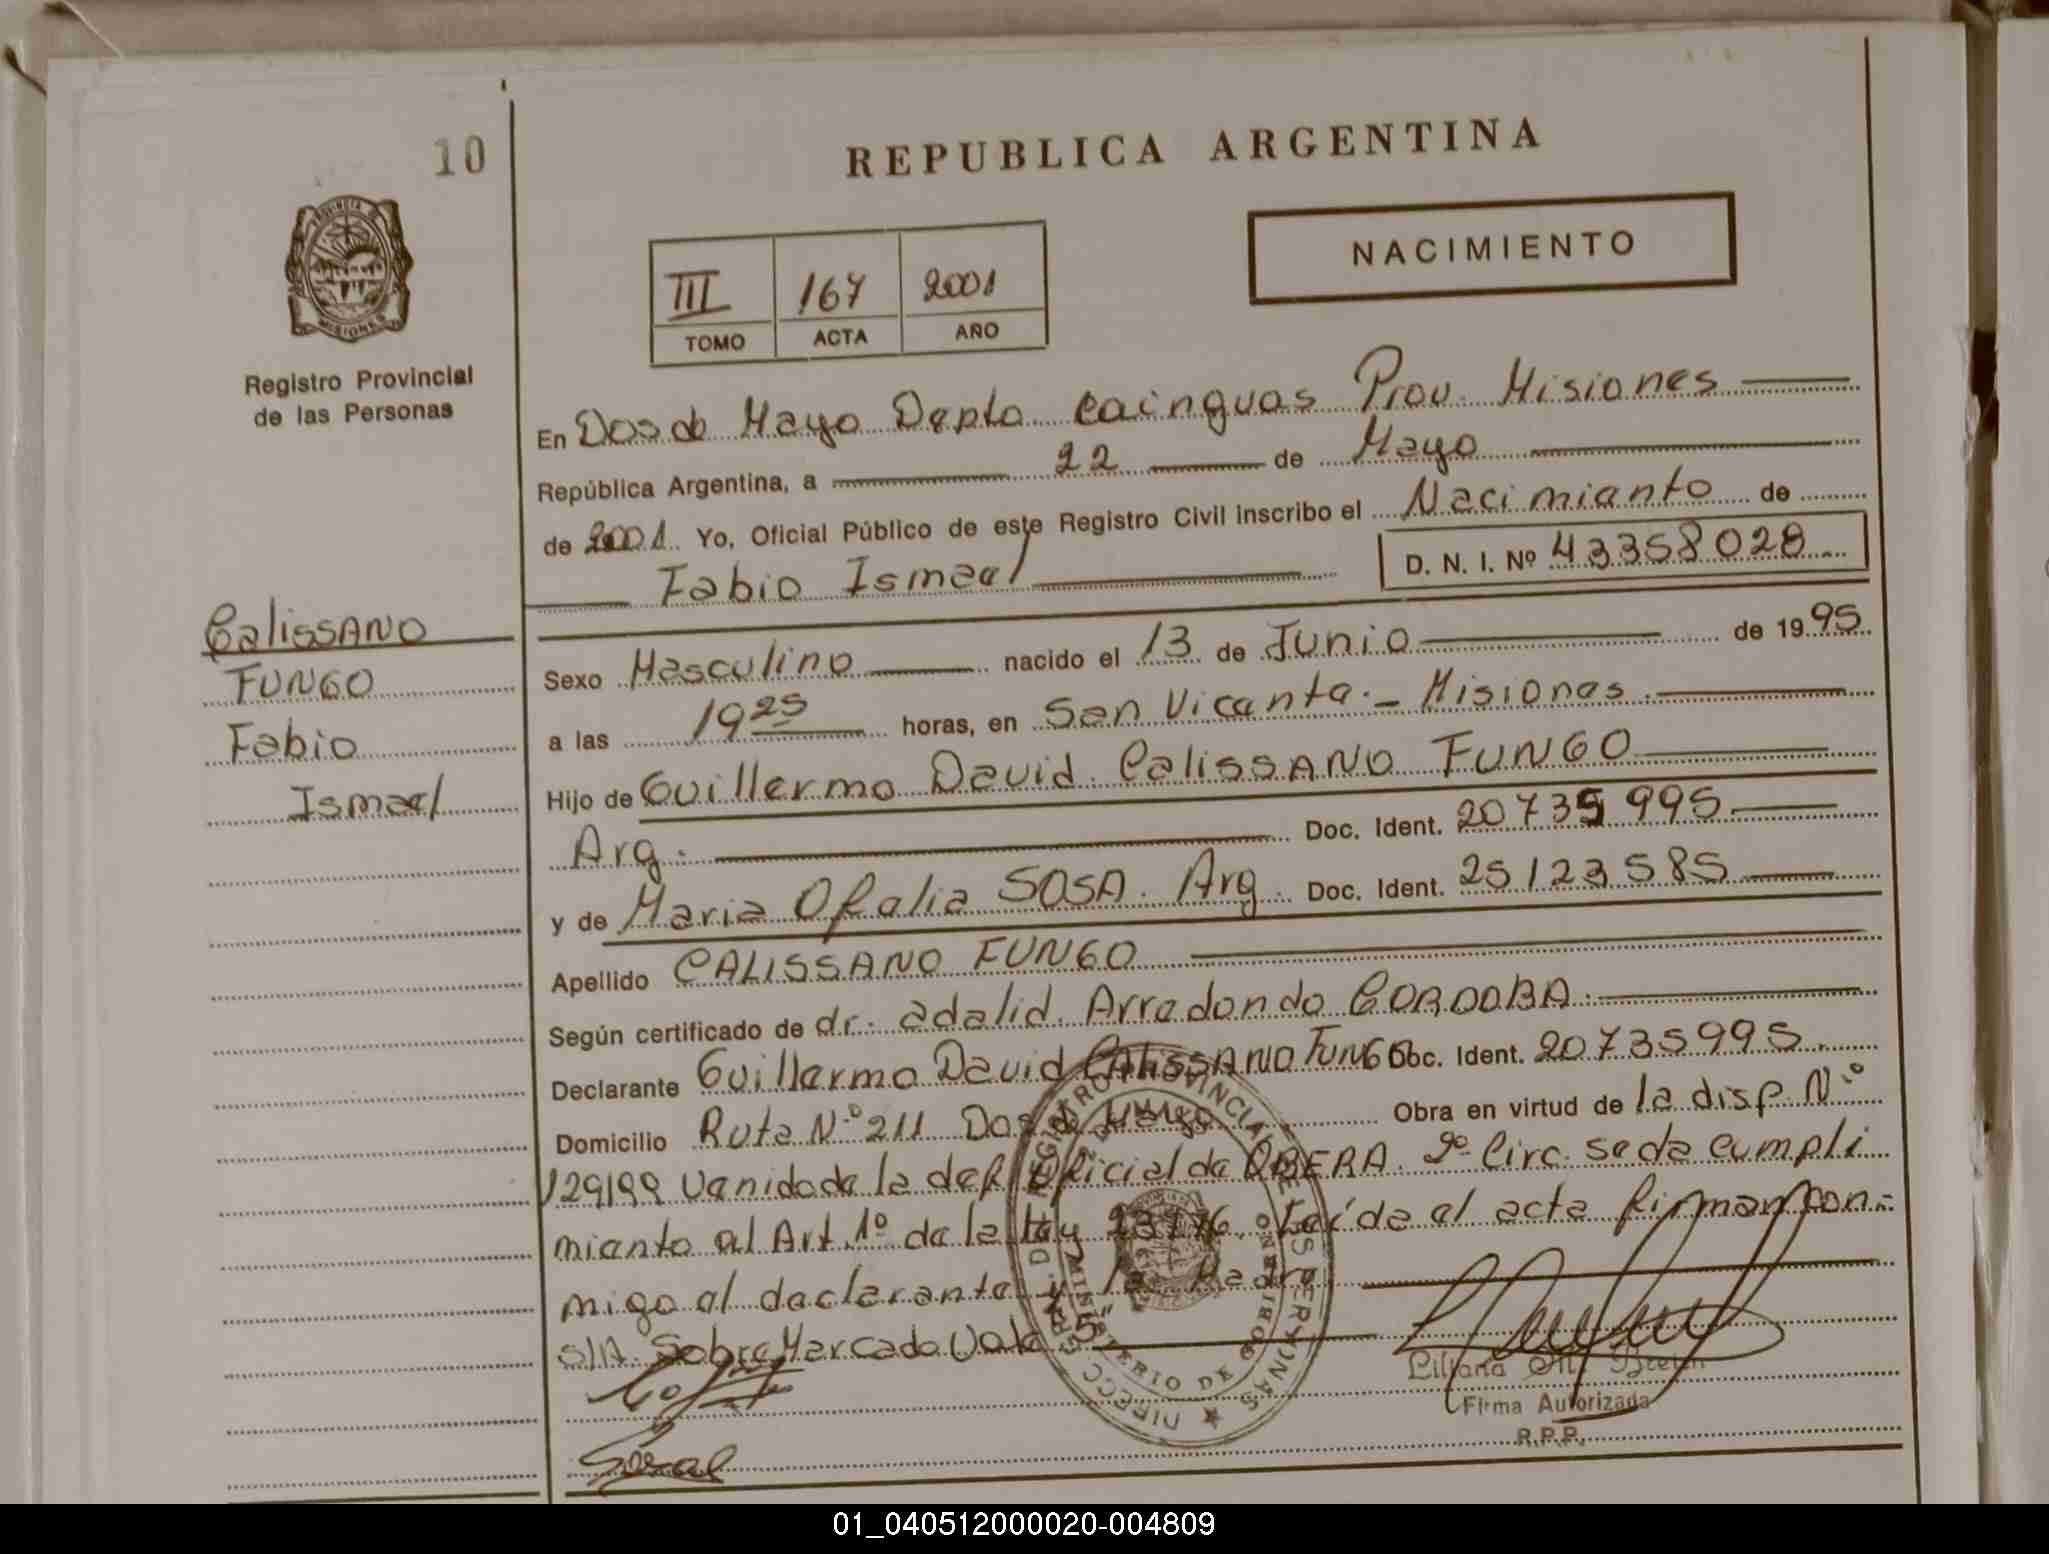 10
REPUBLICA ARGENTINA
NACIMIENTO
III 167 2001
TOMO ACTA AÑO
PROVINCIA DE
MISIONES
Registro Provincial
de las Personas
En Dos de Mayo Depto. Cainguas Prov. Misiones
República Argentina, a 22 de Mayo
de 2001. Yo, Oficial Público de este Registro Civil inscribo el Nacimiento de
Fabio Ismael D. N. I. Nº 43358028
Calissano
FUNGO
Fabio
Ismael
Sexo Masculino nacido el 13 de Junio de 1995
a las 19 25 horas, en San Vicente. - Misiones.
Hijo de Guillermo David Calissano FUNGO
Arg. Doc. Ident. 20735995
y de Maria Ofelia SOSA. Arg. Doc. Ident. 25123585
Apellido CALISSANO FUNGO
Según certificado de dr. adalid. Arredondo CORDOBA.
Declarante Guillermo David CALISSANO FUNGO Doc. Ident. 20735995.
Domicilio Ruta Nº 211 Dos de Mayo Obra en virtud de la disp. Nº
129/99 venida de la def. Oficial de OBERA. 2º Circ. se da cumpli
miento al Art. 1º de la Ley Leída el acta firman con-
migo el declarante y la Madre
S/A. Sobre Marcado Vale "5"
DIRECC. GRAL. DEL REGISTRO PROVINCIAL DE LAS PERSONAS
MINISTERIO DE GOBIERNO
Liliana M.
Firma Autorizada
R.P.P.
01_040512000020-004809